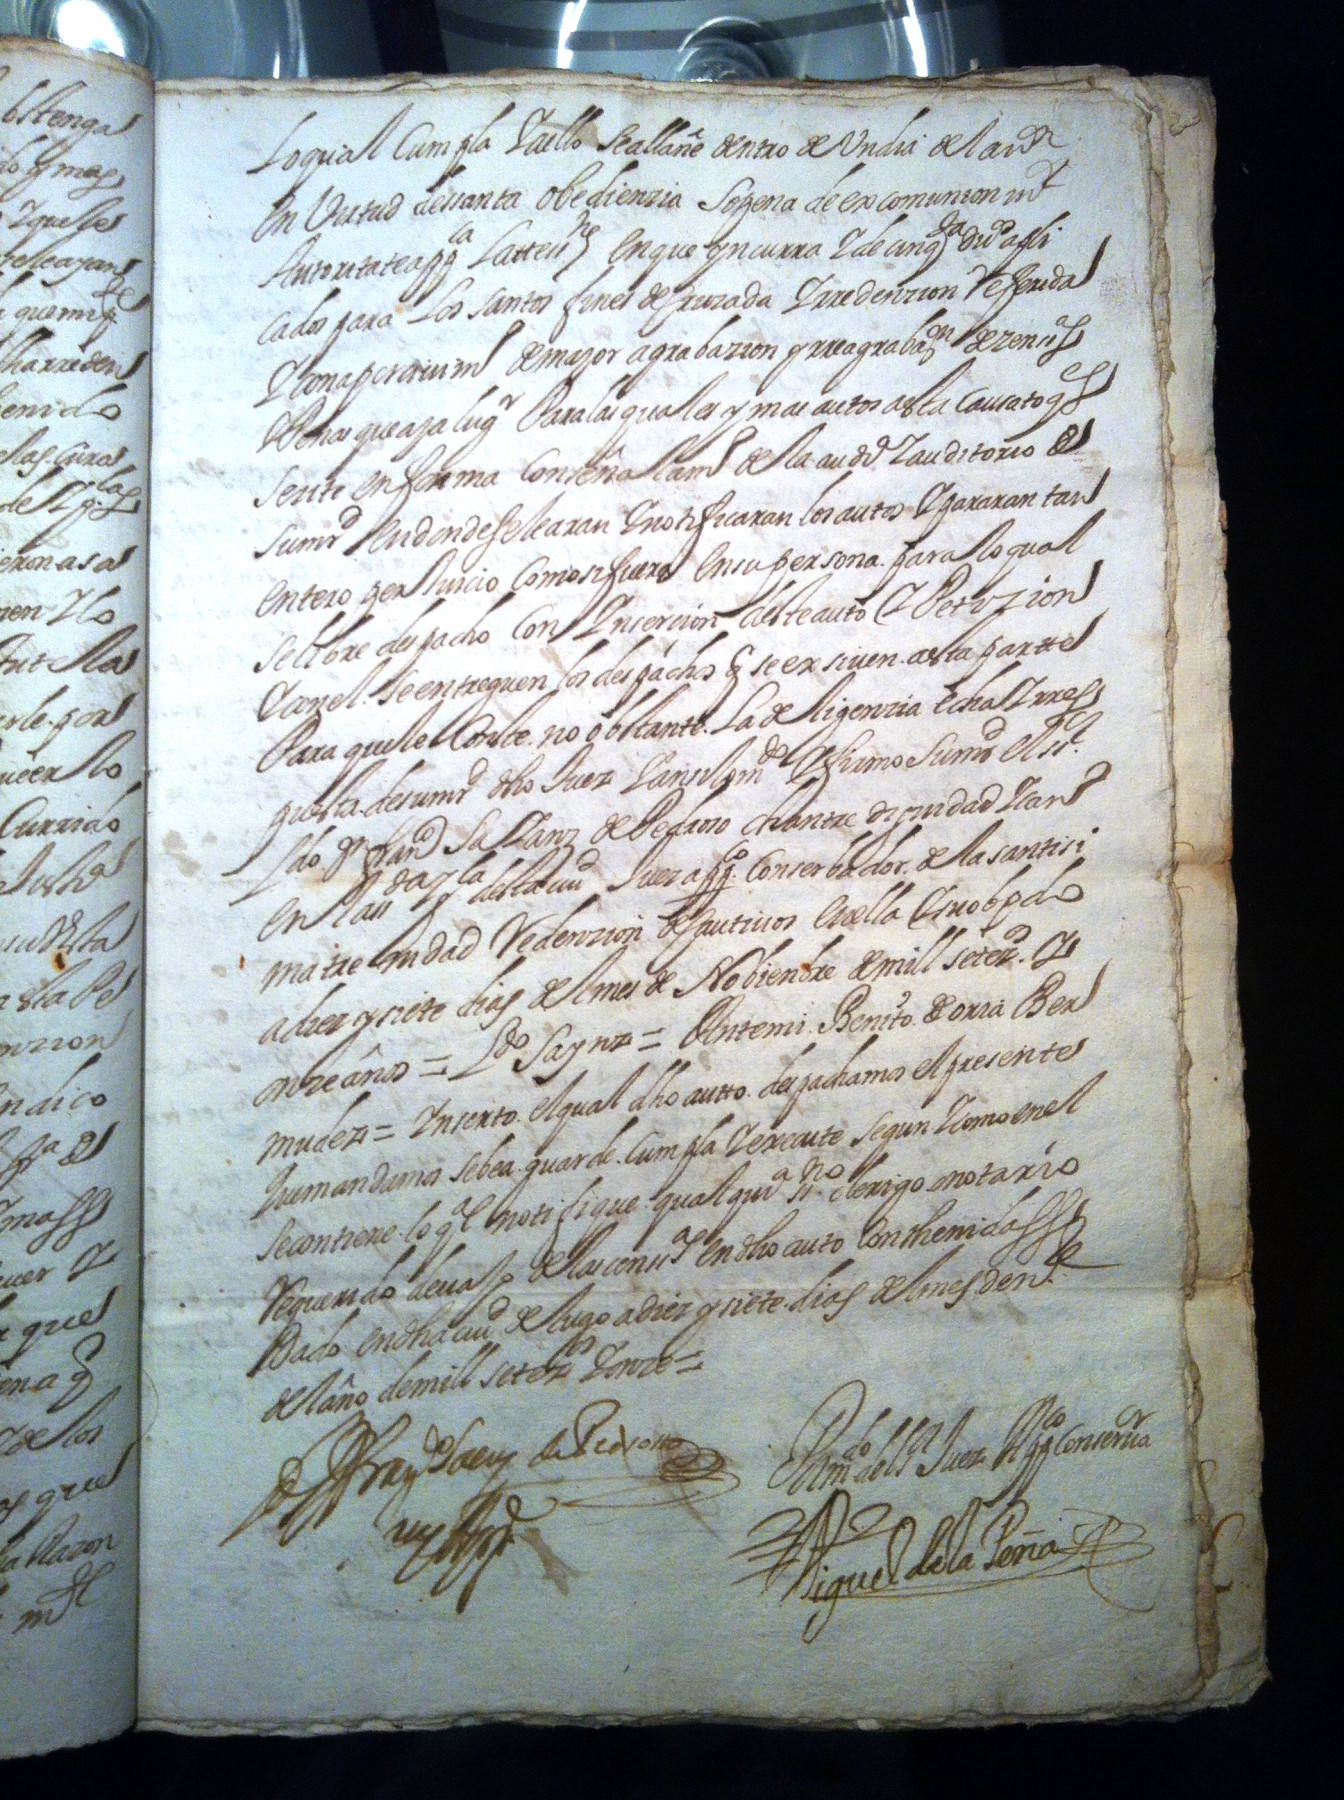 Lo qual Cumpla Y aello se allañe dentro de Un dia de la
En Virtud de santa obedienzia so pena de excomunion
Autoritate app.ca Latte en que yncurra Y de cinq.ta du.s apli
cados para Los santos fines de cruzada Y rredenzion Referida
Y con apercivim.to de mayor agrabazion y rreagrabaz.on de zensuras
Y Penas que aya lug.r Para las quales y mas autos asta
se cite en forma Con señalam.to de la aud.a Y auditorio de
su mr.d En donde se le aran Y notificaran los autos Y pararan tan
entero perJuicio Como si fuera En su persona para lo qual
se libre despacho Con Ynsercion deste auto Y Petizion
Y con el se entreguen los despachos q se exsiven a esta parte
Para que le Conste no obstante La deligenzia echa Y rres
puesta de su mr.d dho Juez Y ansi lo m.do Y firmo su mr.d el s.r
Ldo. D.n fran.co SaYanz de Pedroso chantre dignidad Y can.
en la s.ta desta ciu.d Juez app.co Conserbador de la santisi
ma trenidad Redenzion de Cautivos En ella Y su obpdo
a diez y siete dias del mes de Nobiembre de mill setez.os Y
onze años = Ldo Saynz = Ante mi Benito de oria Ber
mudez = Ynserto el qual dho autto despachamos el presente
Y mandamos se bea guarde Cumpla Y execute segun Y Como en el
se contiene lo q.l notifique qualqui.a ss.no clerigo o notario
Requerido devajo de las cens.as En dho auto Contthenidas
Dado en dha ciu.d de lugo a diez y siete dias del mes de n.re
del año de mill setez.os Y onze =
D. Fran.co Saenz de Pedroso
Por m.do del s.r Juez App.co Conserva.r
Miguel de la Peña